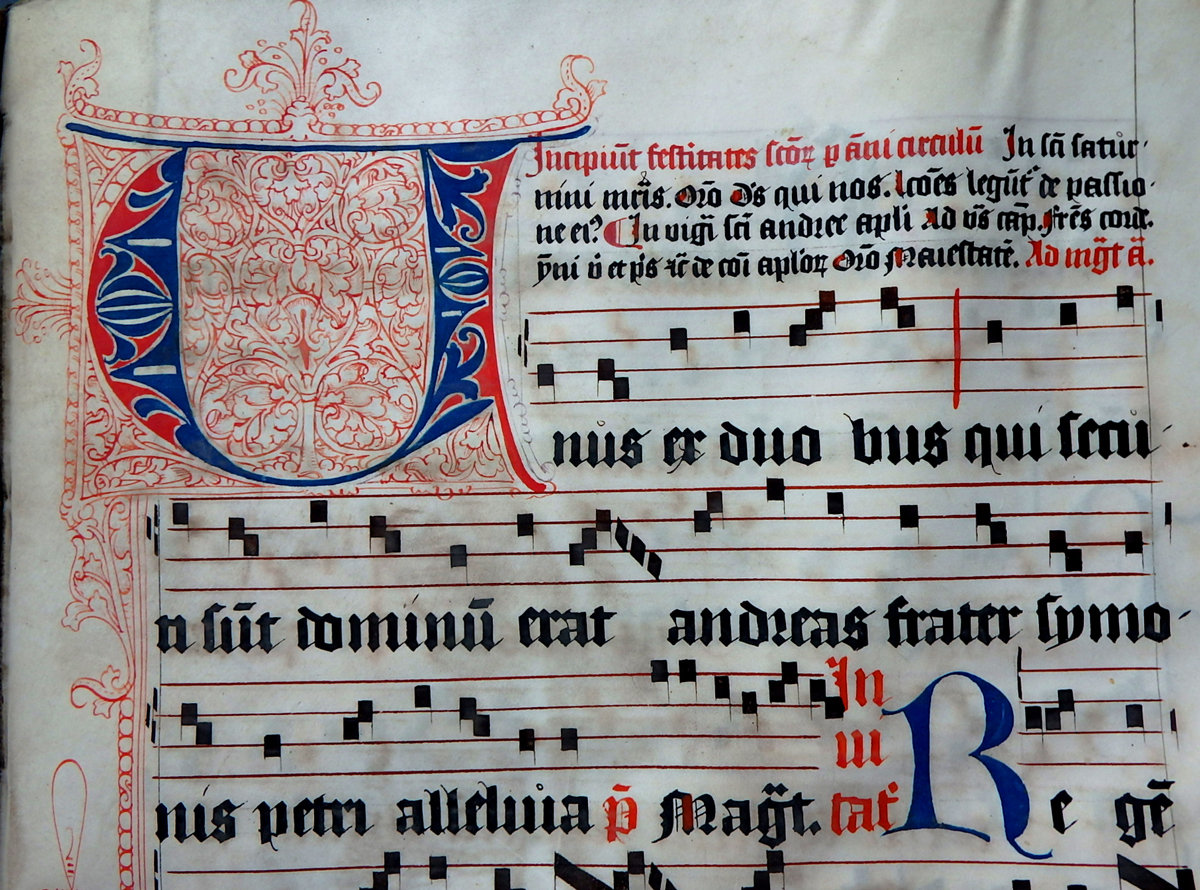 Incipiūt festitates sctōꝝ p āni circulū In scī satur-
nini mr̄is. Orō Ds qui nos. Lcōes legūt de passio-
ne ei? In vigi scī andree apli Ad vs cap. Frēs corde.
ymi ō et ps ꝛē de cōi aploꝝ Orō Maiestatē. Ad mgt ā.
Unus ex duo bus qui secu-
ti sūt dominū erat andreas frater symo-
nis petri alleluia p̄ Magt. In
ui
tat
Re gē